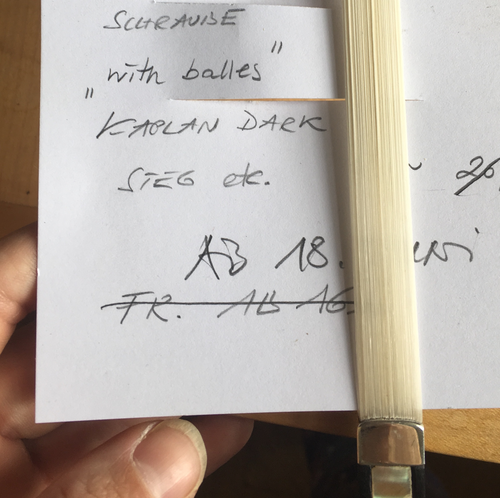 SCHRAUBE
„with balles"
KAPLAN DARK
STEG etc. 26
AB 18.
FR. AB 16.